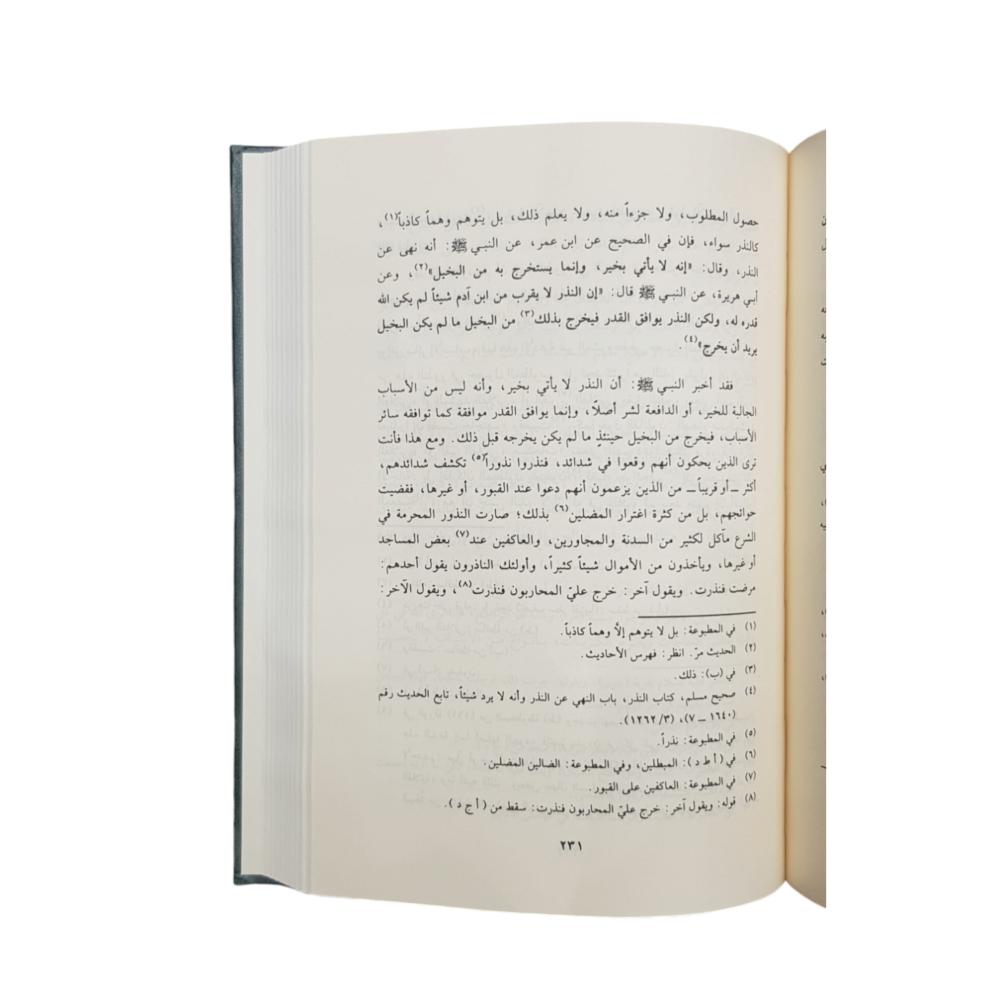 حصول المطلوب، ولا جزءاً منه، ولا يعلم ذلك، بل يتوهم وهماً كاذباً(١)،
كالنذر سواء، فإن في الصحيح عن ابن عمر، عن النبي ﷺ: أنه نهى عن
النذر، وقال: «إنه لا يأتي بخير، وإنما يستخرج به من البخيل»(٢)، وعن
أبي هريرة، عن النبي ﷺ قال: «إن النذر لا يقرب من ابن آدم شيئاً لم يكن الله
قدره له، ولكن النذر يوافق القدر فيخرج بذلك(٣) من البخيل ما لم يكن البخيل
يريد أن يخرج»(٤).
فقد أخبر النبي ﷺ: أن النذر لا يأتي بخير، وأنه ليس من الأسباب
الجالبة للخير، أو الدافعة لشر أصلاً، وإنما يوافق القدر موافقة كما توافقه سائر
الأسباب، فيخرج من البخيل حينئذٍ ما لم يكن يخرجه قبل ذلك. ومع هذا فأنت
ترى الذين يحكون أنهم وقعوا في شدائد، فنذروا نذوراً(٥) تكشف شدائدهم،
أكثر ــ أو قريباً ــ من الذين يزعمون أنهم دعوا عند القبور، أو غيرها، فقضيت
حوائجهم، بل من كثرة اغترار المضلين(٦) بذلك؛ صارت النذور المحرمة في
الشرع مآكل لكثير من السدنة والمجاورين، والعاكفين عند(٧) بعض المساجد
أو غيرها، ويأخذون من الأموال شيئاً كثيراً، وأولئك الناذرون يقول أحدهم:
مرضت فنذرت. ويقول آخر: خرج عليّ المحاربون فنذرت(٨)، ويقول الآخر:
(١) في المطبوعة: بل لا يتوهم إلَّا وهماً كاذباً.
(٢) الحديث مرّ. انظر: فهرس الأحاديث.
(٣) في (ب): ذلك.
(٤) صحيح مسلم، كتاب النذر، باب النهي عن النذر وأنه لا يرد شيئاً، تابع الحديث رقم
(١٦٤٠ ــ ٧)، (٣/١٢٦٢).
(٥) في المطبوعة: نذراً.
(٦) في (أ ط د): المبطلين، وفي المطبوعة: الضالين المضلين.
(٧) في المطبوعة: العاكفين على القبور.
(٨) قوله: ويقول آخر: خرج عليّ المحاربون فنذرت: سقط من (أ ج د).
٢٣١